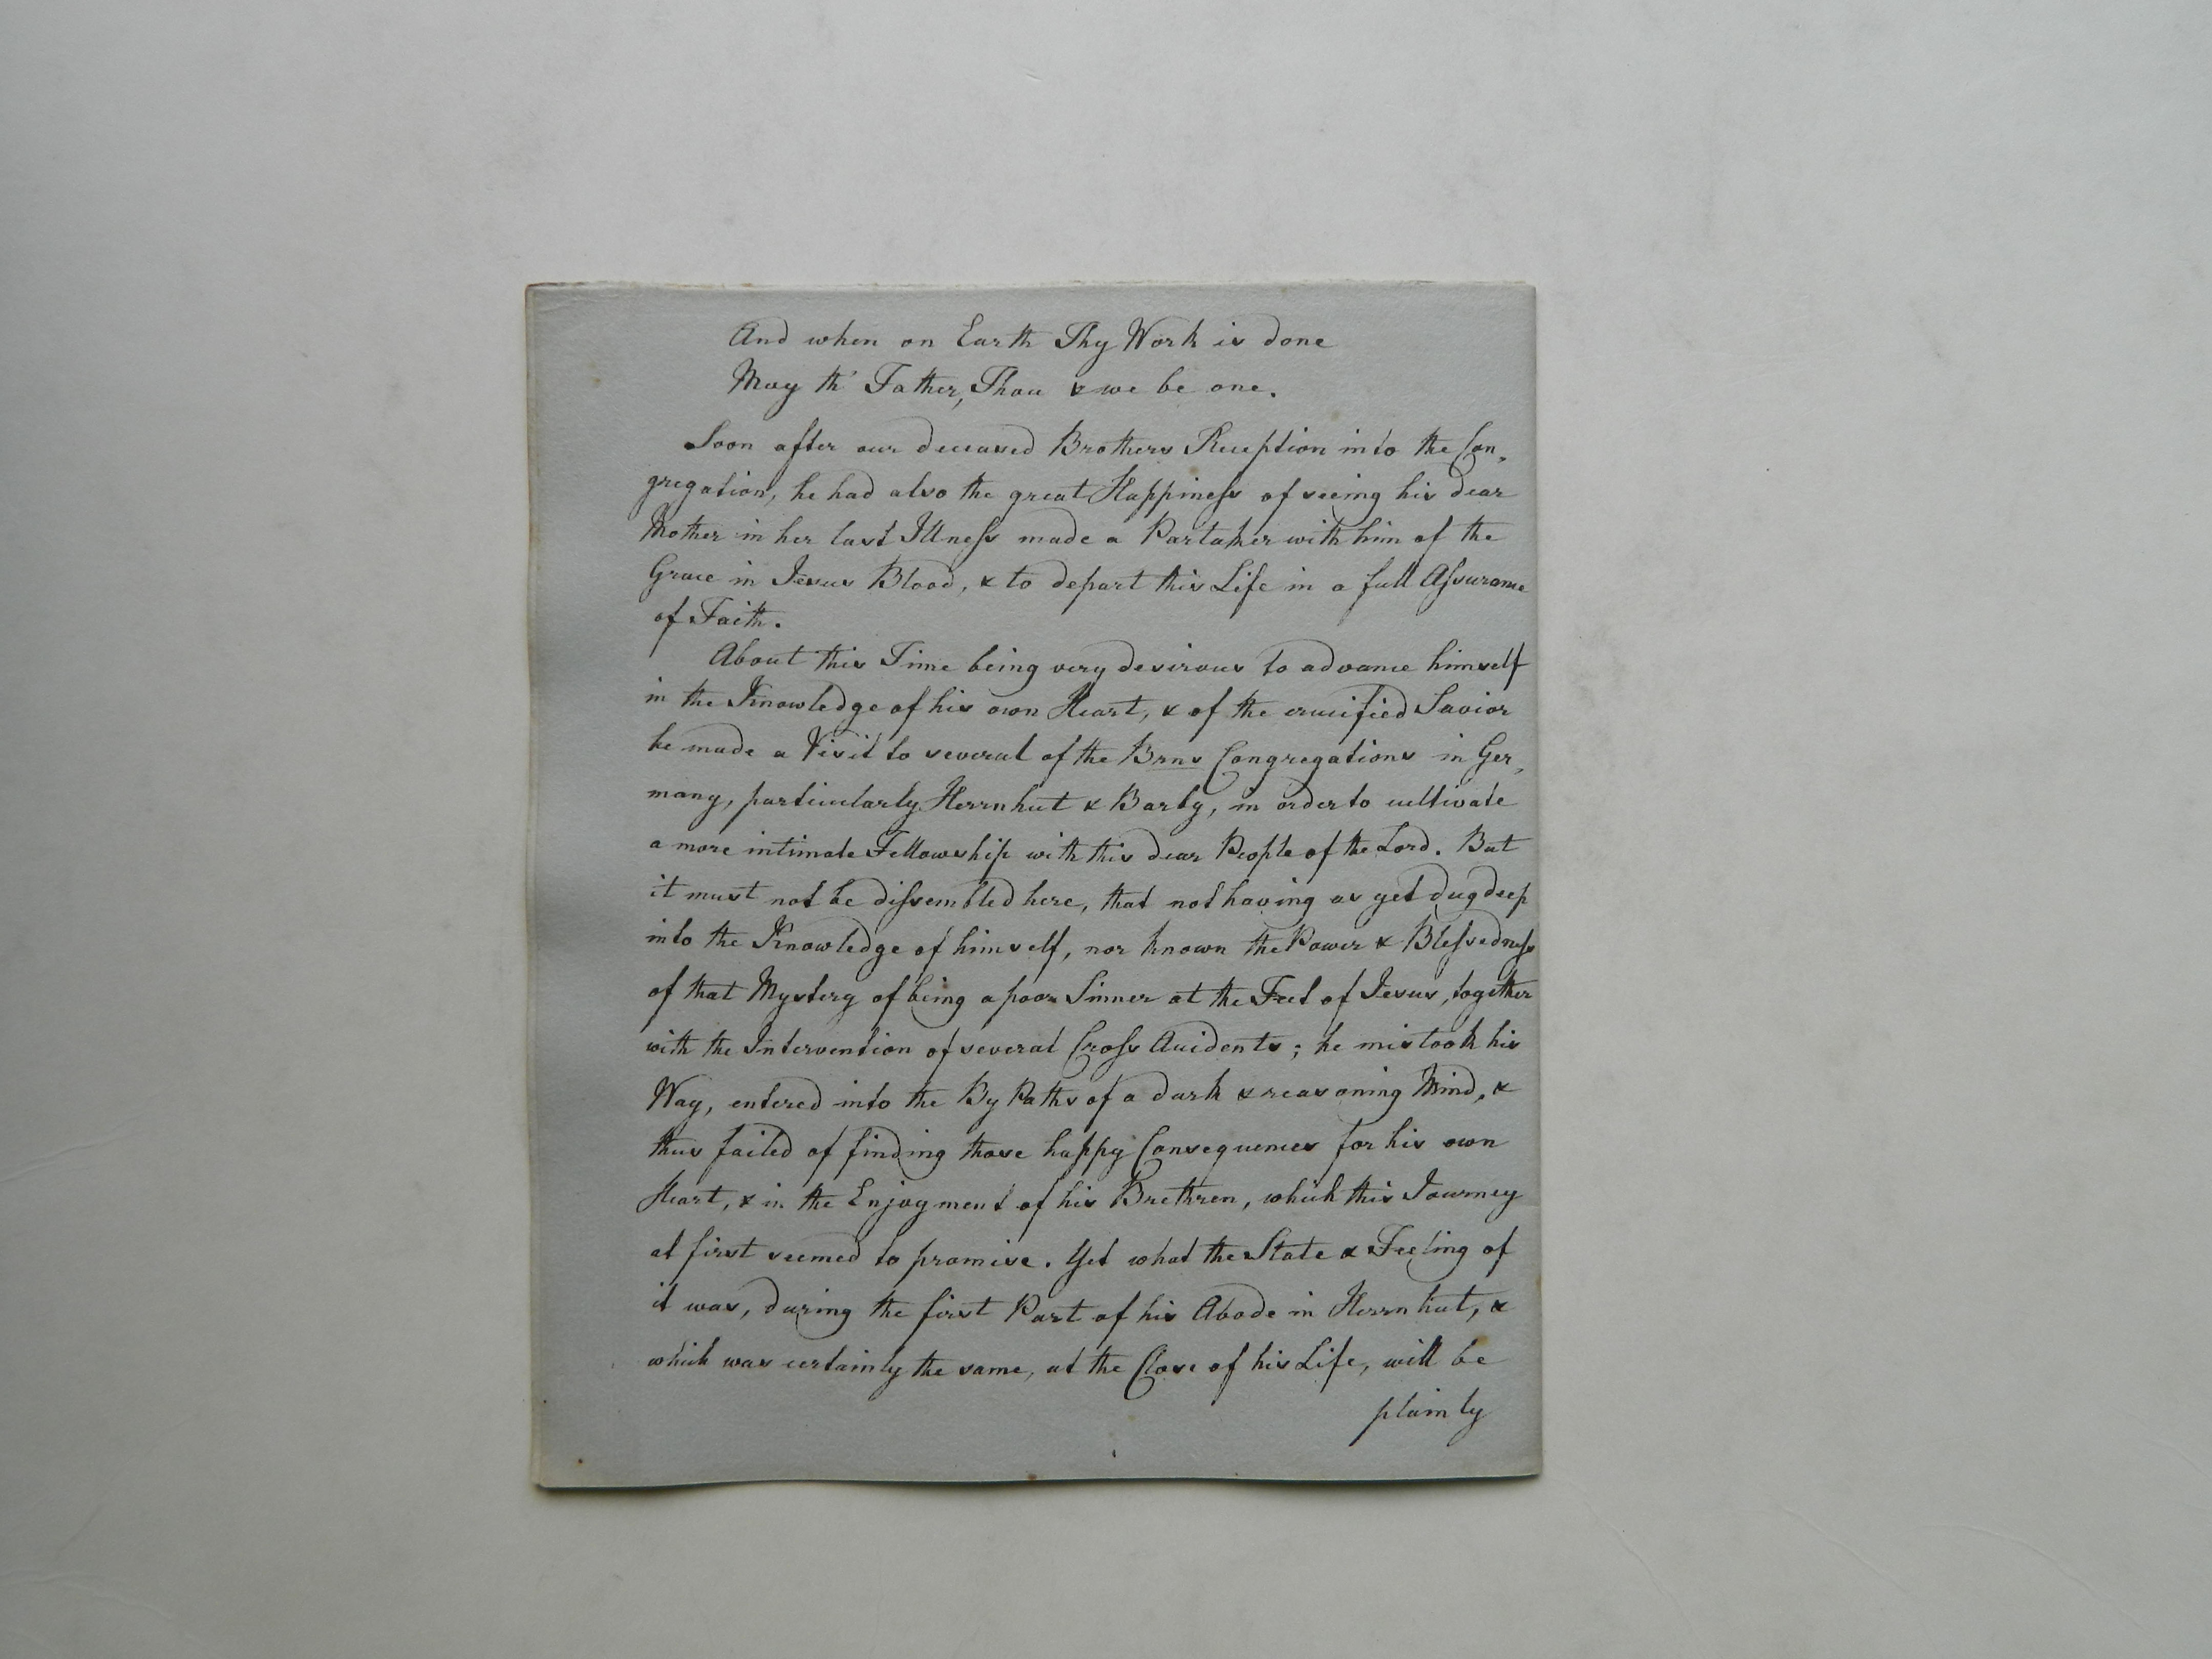 And when on Earth Thy Work is done
May th' Father, Thou & we be one.
Soon after our deceased Brothers Reception into the Con,
gregation, he had also the great Happiness of seeing his dear
Mother in her last Illness made a Partaker with him of the
Grace in Jesus Blood, & to depart this Life in a full Assurance
of Faith.
About this Time being very desirous to advance himself
in the Knowledge of his own Heart, & of the crucified Savior
he made a Visit to several of the Brns Congregations in Ger,
many, particularly Herrnhut & Barby, in order to cultivate
a more intimate Fellowship with this dear People of the Lord. But
it must not be dissembled here, that not having as yet dug deep
into the Knowledge of himself, nor known the Power & Blessedness
of that Mystery of being a poor Sinner at the Feet of Jesus, together
with the Intervention of several Cross Accidents; he mistook his
Way, entered into the By Paths of a dark & reasoning Mind, &
thus failed of finding those happy Consequences for his own
Heart, & in the Enjoyment of his Brethren, which this Journey
at first seemed to promise. Yet what the State & Feeling of
it was, during the first Part of his Abode in Herrnhut, &
which was certainly the same, at the Close of his Life, will be
plainly